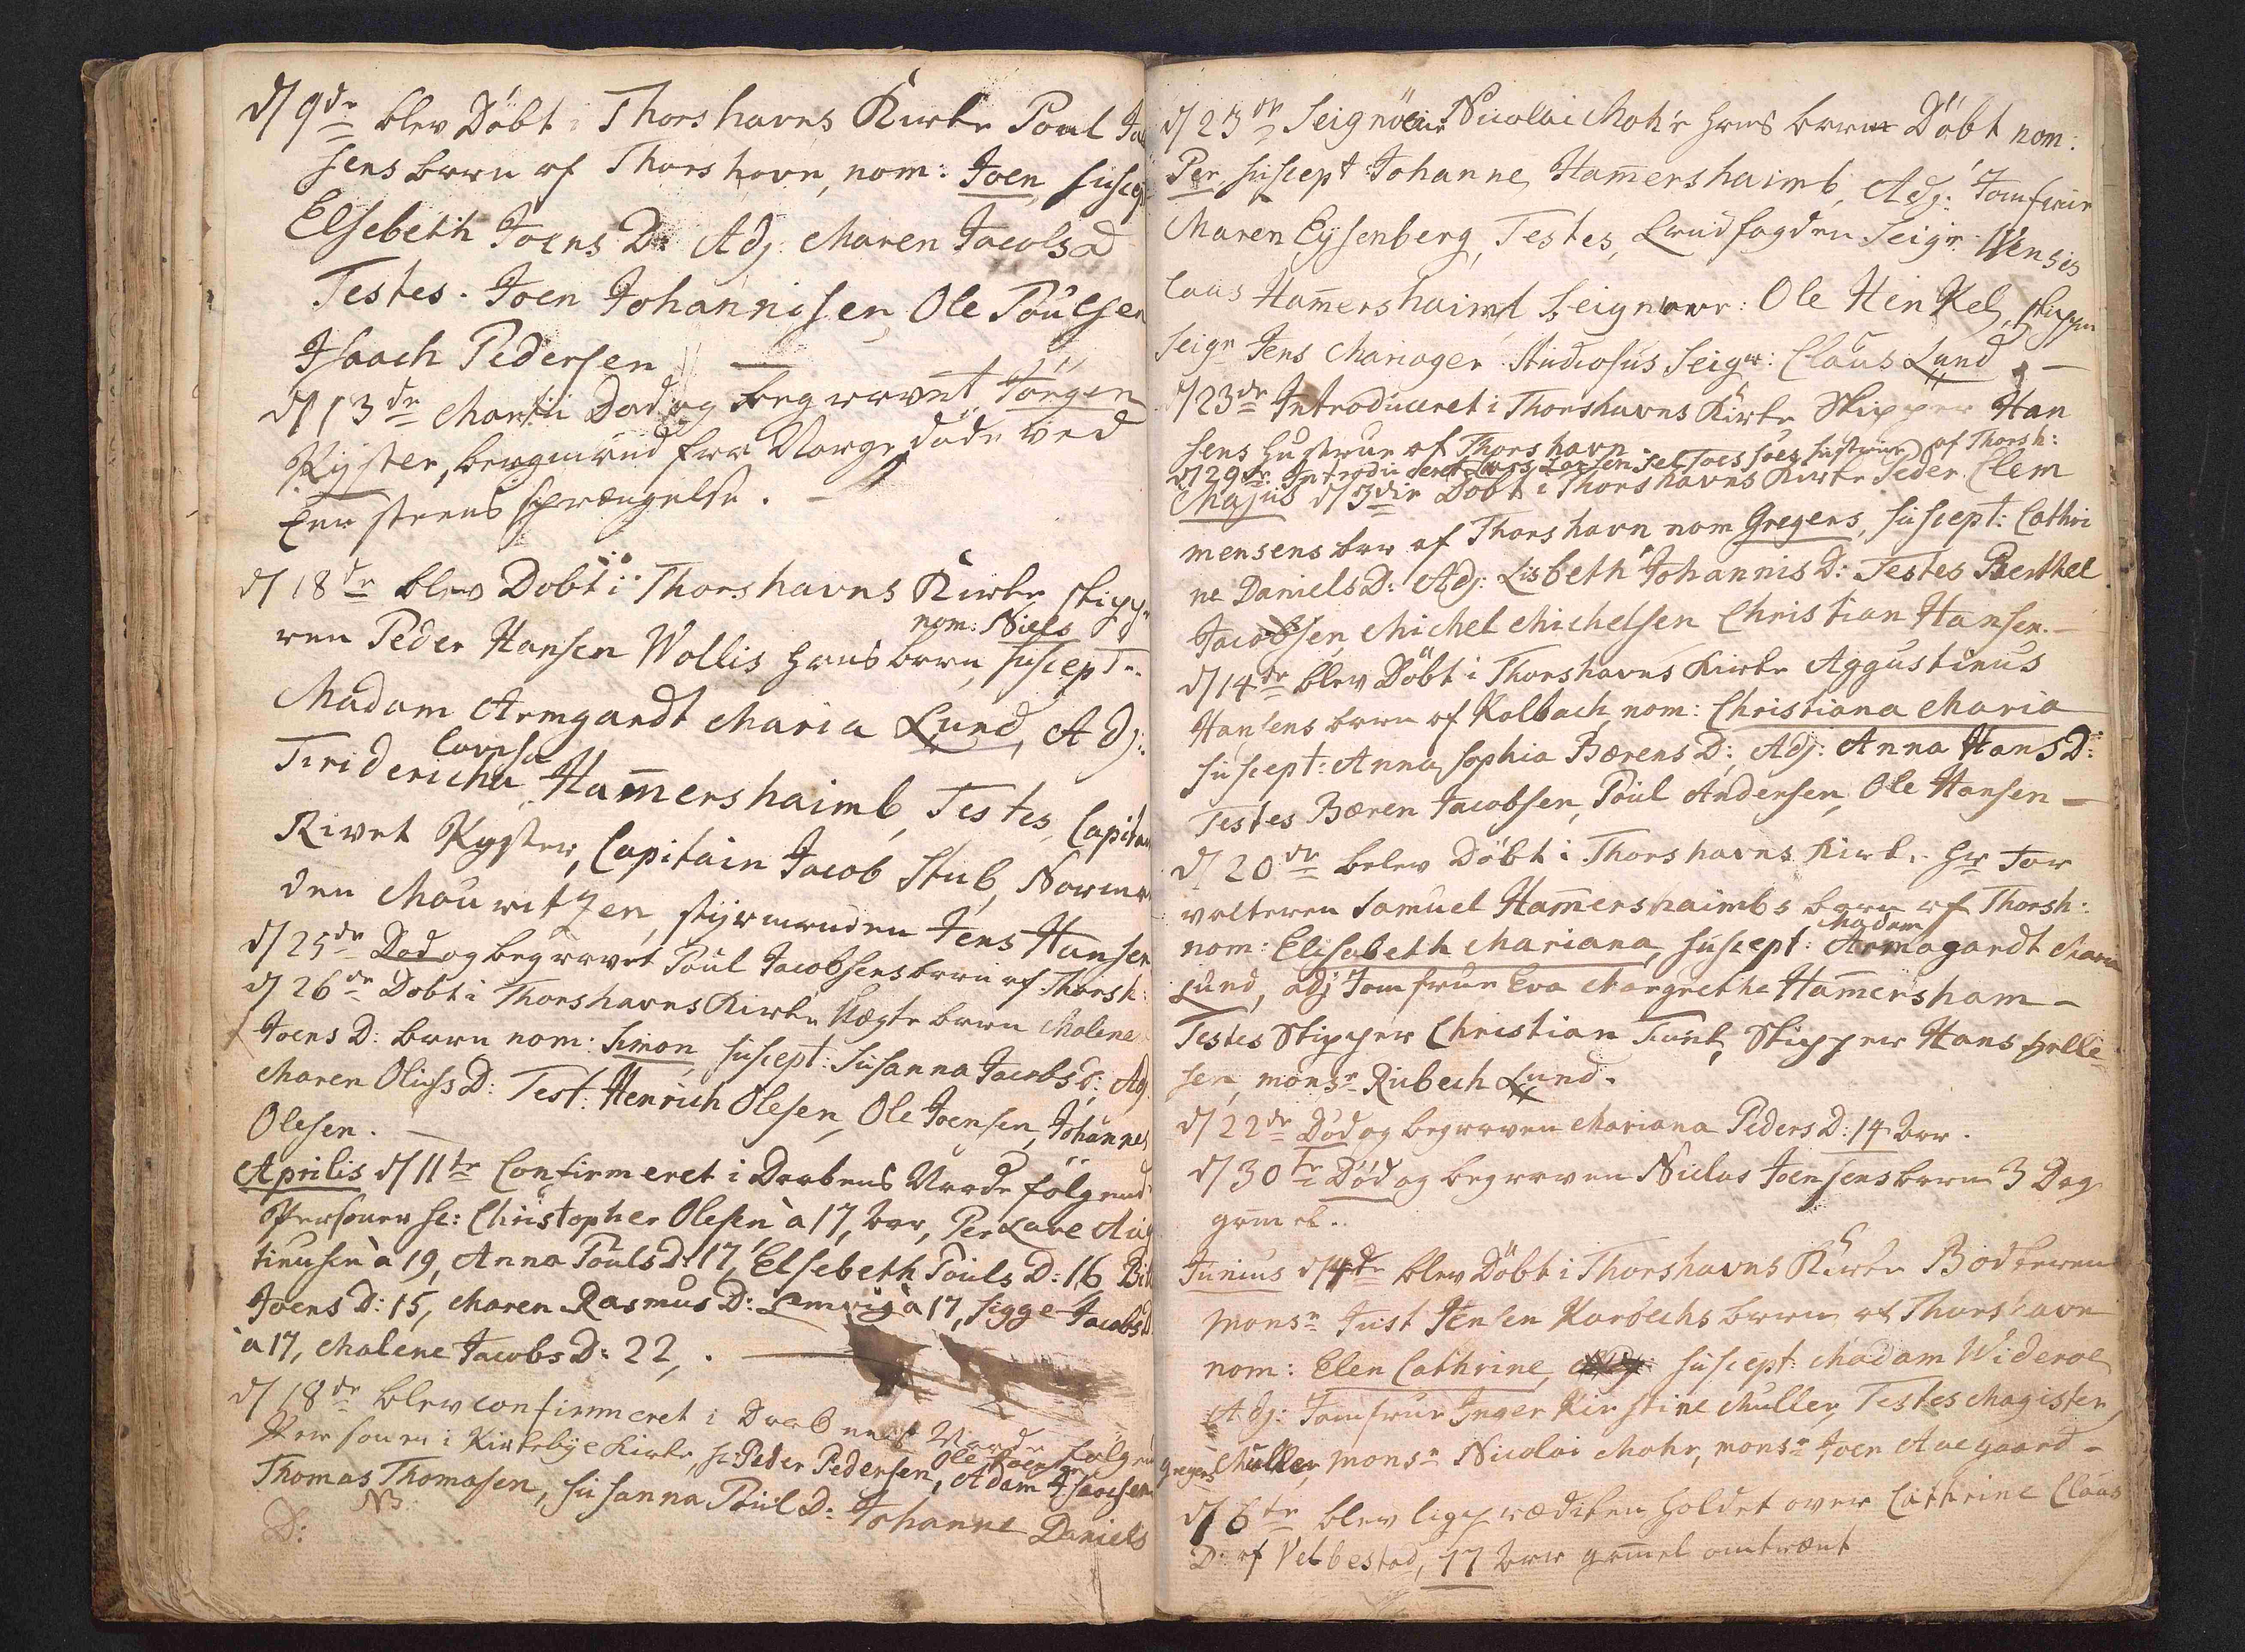 d/ 9de blev Döbt i Thorshavns Kirke Poul Ja
sens barn af Thorshavn, nom: Joen, suscept
Elsebeth Joens D: Adj: Maren Jacobs D
Testes. Joen Johannisen, Ole Poulsen
Isaach Pedersen
d/ 13de Martii Död og begravet Jörgen
Kyster, bergmand fra Norge, döde ved
Een steens sprængelse.
d/ 18de blev Dobt i Thorshavns Kirke skippe
nom: Niels
ren Peder Hansen Wollis hans barn, suscept:
Madam Armgardt Maria Lund, Adj:
Lovisa
Fridericha Hamershaimb, Testes, Capitain
Kyster, Capitain Jacob Stub,
den Mouritzen, styrmanden Jens Hansen
d/ 25de Dod og begravet Poul Jacobsens barn af Thorsh:
d/ 26de Dobt i Thorshavns Kirke Uægte barn Malene
Joens D: barn nom: Simon, suscept: Susanna Jacobs D: Adj
Maren Olufs D: Test: Henrich Olesen, Ole Joensen, Johannes
Olesen.
Aprilis d/ 11te Confirmeret i Daabens Naade fölgend
Personer sc: Christopher Olesen à 17, aar, Per Lave Aug
tinusen à 19, Anna Pouls D: 17, Elsebeth Pouls D: 16
Joens D: 15, Maren Rasmus D: à 17, Sigge Jacobs D
à 17, Malene Jacobs D: 22,
d/ 18de blev confirmeret i Daabens Naade fölgend
Ole Joensen
Personer i Kirkebye Kirke, sc: Peder Pedersen, Adam Isaacsen
Thomas Thomasen, Susanna Poul D: Johanne Daniels
NB
D:
d/ 23de Seignöeur Nicolai Mohr hans barn Döbt nom:
Per suscept Johanne Hamershaimb, Adj: Jomfrue
Maren Eysenberg, Testes, Landfogden Seigr. Wenses
laus Hamershaimb Seigneur: Ole Henkel, skipper
Seigr Jens Mariager Studiosus Seigr: Claus Lund
d/ 23de Introduceret i Thorshavns Kirke Skipper Han
sens hustrue af Thorshavn
d/ 29de Introduceret hustrue af Thorsh:
Majus d/ 3die Dobt i Thorshavns Kirke Peder Clem
mensens barn af Thorshavn nom Gregers, suscept: Cathri
ne Daniels D: Adj: Lisbeth Johannis D: Testes Berthel
Jacobsen, Michel Michelsen Christian Hansen.
d/ 14de blev Döbt i Thorshavns Kirke Aggustinus
Hansens barn af Kolbach, nom: Christiana Maria
suscept: Anna Sophia Bærens D:, Adj: Anna Hans D:
Testes Bæren Jacobsen, Poul Andersen, Ole Hansen
d/ 20de belev Döbt i Thorshavns Kirke Hr For
valteren Samuel Hamershaimbs barn af Thorsh:
Madam
nom: Elisabeth Mariana, suscept: Armagardt Maria
Lund, adj Jomfrue Eva Margrethe Hamersham
Testes Skipper Christian Funk, Skipper Hans Helle
sen, monsr Rubech Lund.
d/ 22de Död og begraven Mariana Peders D: 14 aar.
d/ 30te Död og begraven Niclas Joensens barn 3 Dage
gamel.
Junius d/ 4de blev Döbt i Thorshavns Kirke Bödkeren
Monsr Just Jensen Karbechs barn af Thorshavn
nom: Elen Cathrine, suscept: Madam Wideroe
Adj: Jomfrue Inger Kirstine Muller, Testes Magister,
Gregers Muller, monsr Nicolai Mohr, monsr Joen Aaegaard
d/ 6te blev ligprædiken holdet over Cathrine Claus
D: af Velbestad, 77 aar gamel omtrænt